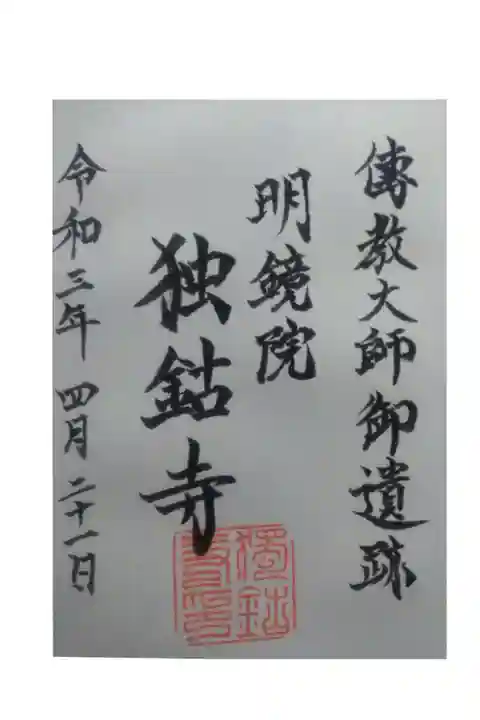 傳教大師御遺跡
明鏡院
独鈷寺
令和三年 四月二十一日